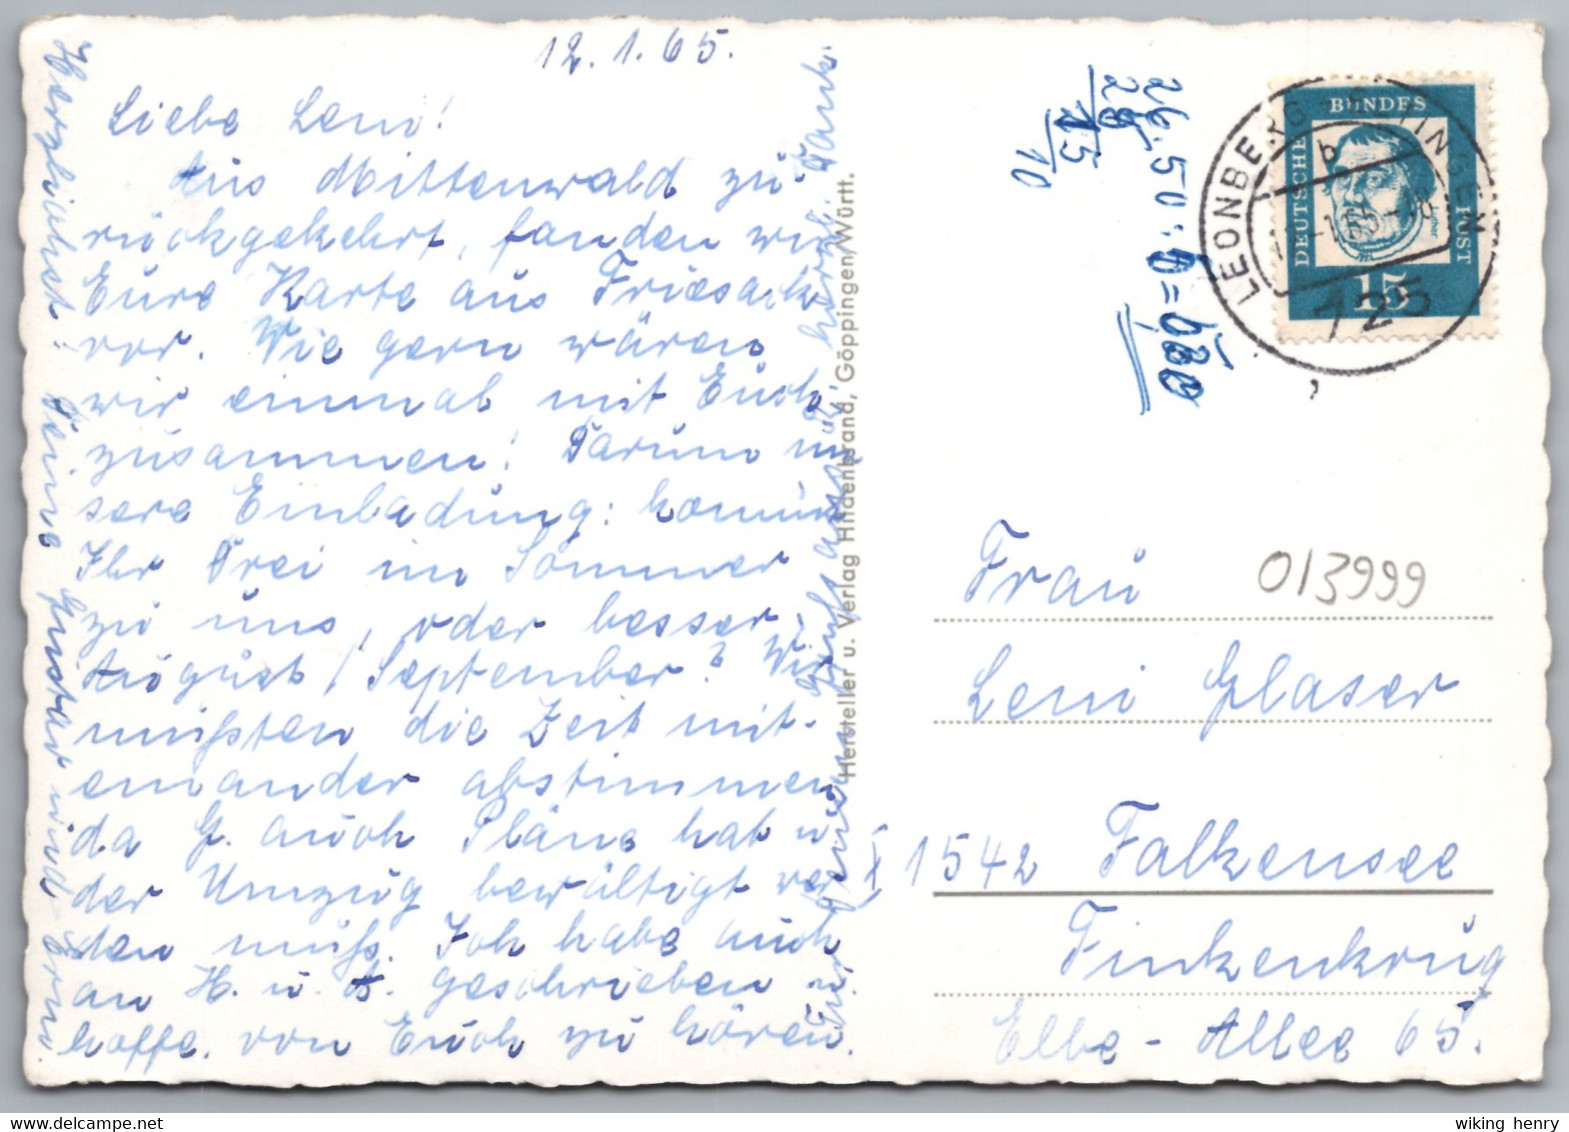 12.1.65.
Liebe Leni!
Aus Mittenwald zu-
rückgekehrt, fanden wir
Eure Karte aus Friesack
vor. Wie gern wären
wir einmal mit Euch
zusammen! Darum un
sere Einladung: kommt
Ihr Drei im Sommer
zu uns, oder besser
August/September? Wir
müßten die Zeit mit-
einander abstimmen
da G. auch Pläne hat u
der Umzug bewältigt wer
den muß. Ich habe auch
an H. u. A. geschrieben u.
hoffe, von Euch zu hören.
Für gut
herzl. Dank.
Herzlichst: Deine Gustav und Erni.
Hersteller u. Verlag Hildenbrand, Göppingen/Württ.
26.50:5=530
25
15
10
LEONBERG-ELTINGEN
b
725
DEUTSCHE
BUNDES
POST
Luther
15
Frau
013999
Leni Glaser
X 1542 Falkensee
Finkenkrug
Elbe-Allee 65.
wiking henry